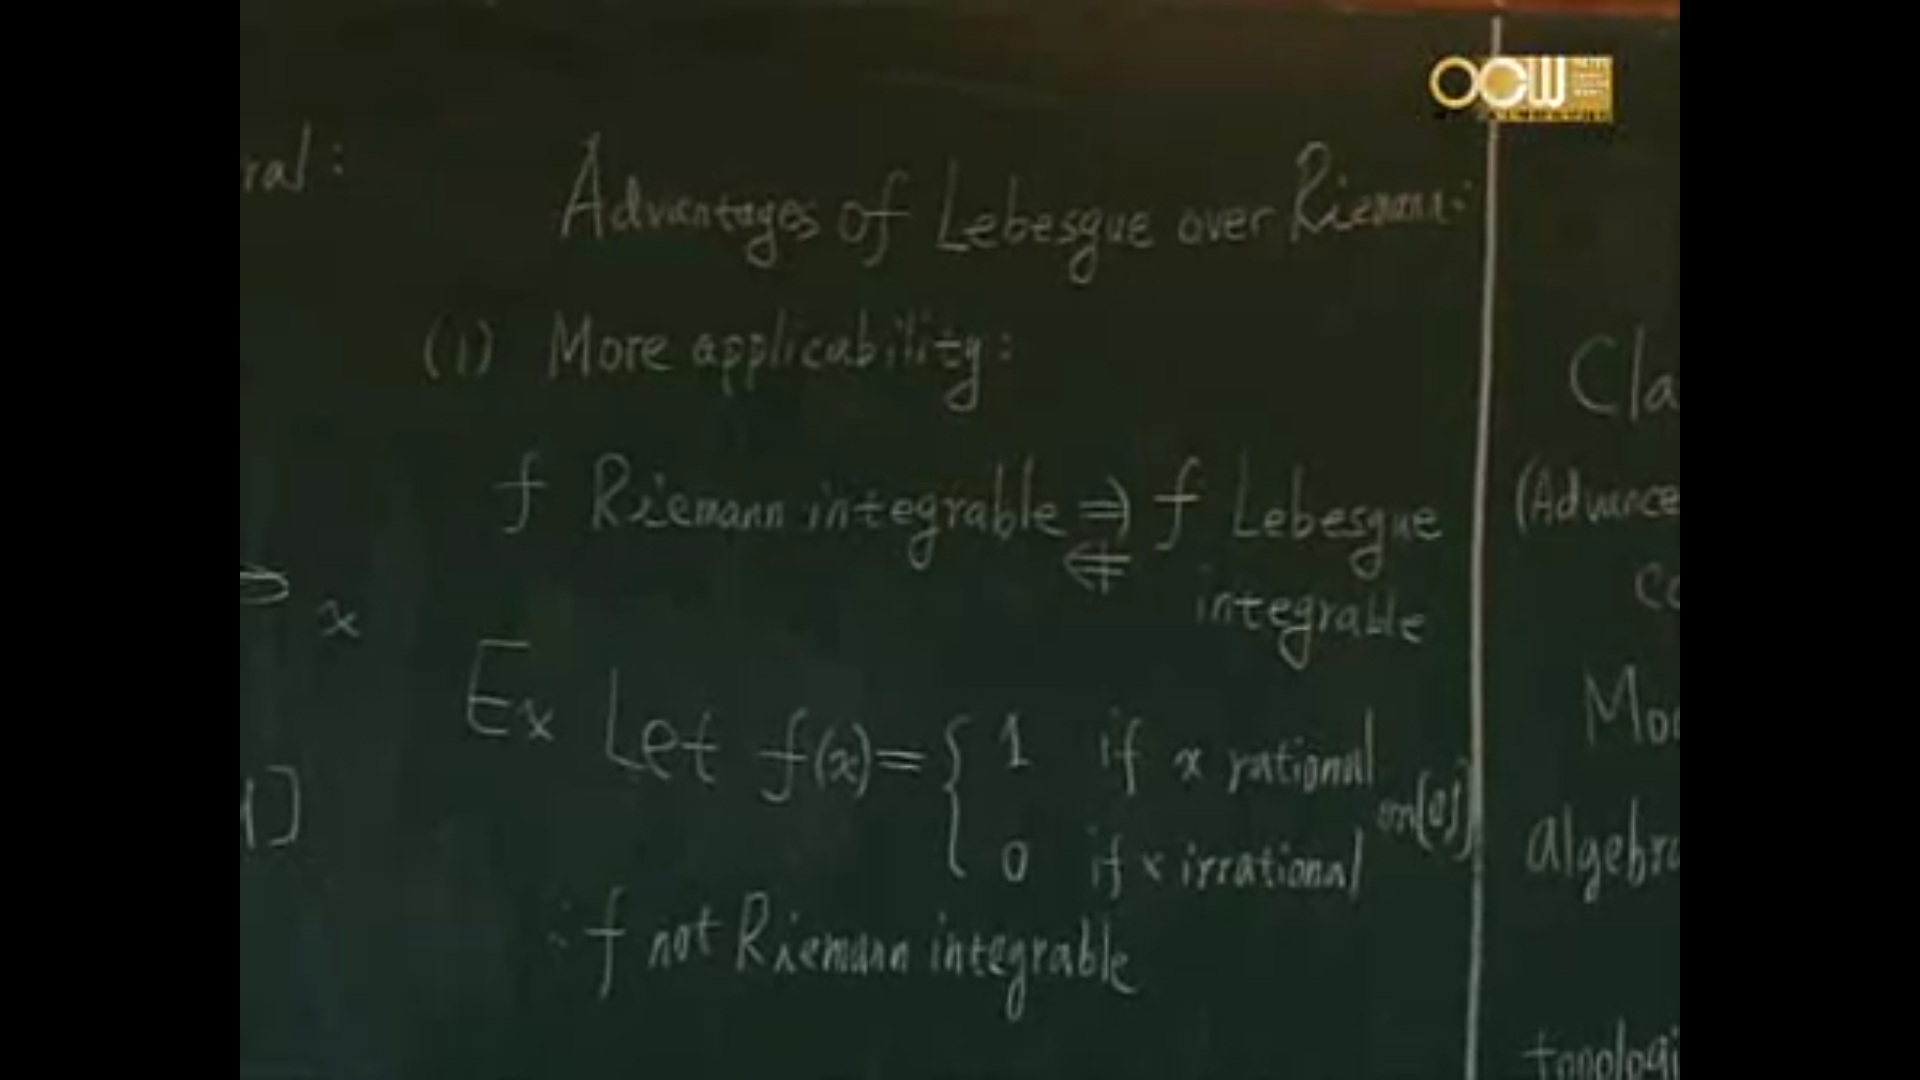 ral:
x
1]
Advantages of Lebesgue over Riemann:
(1) More applicability:
f Riemann integrable ⇒ f Lebesgue
⇍ integrable
Ex Let f(x) = { 1 if x rational
0 if x irrational
on [0,1]
∴ f not Riemann integrable
OCW
Cla
(Advance
co
Mod
algebra
topologi